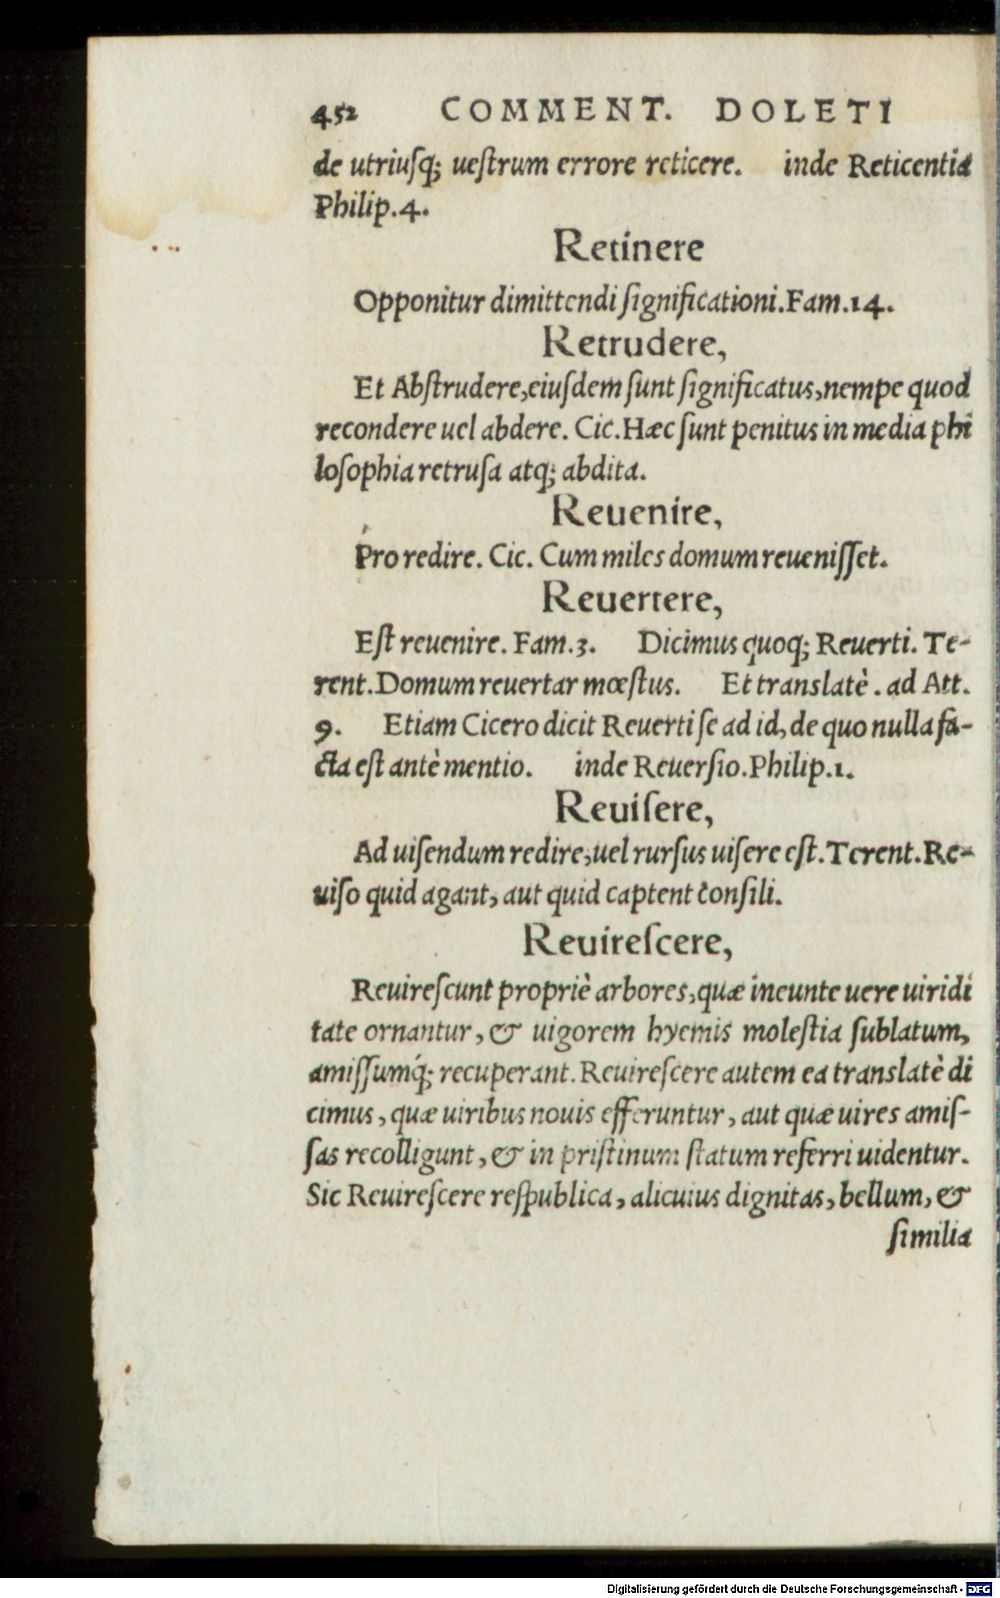 452 COMMENT. DOLETI
de utriusq; uestrum errore reticere. inde Reticentia
Philip.4.
Retinere
Opponitur dimittendi significationi.Fam.14.
Retrudere,
Et Abstrudere,eiusdem sunt significatus,nempe quod
recondere uel abdere. Cic.Hæc sunt penitus in media phi
losophia retrusa atq; abdita.
Reuenire,
Pro redire. Cic. Cum miles domum reuenisset.
Reuertere,
Est reuenire. Fam.3. Dicimus quoq; Reuerti. Te-
rent.Domum reuertar mœstus. Et translatè. ad Att.
9. Etiam Cicero dicit Reuerti se ad id, de quo nulla fa-
cta est antè mentio. inde Reuersio.Philip.1.
Reuisere,
Ad uisendum redire,uel rursus uisere est.Terent.Re-
uiso quid agant, aut quid captent consili.
Reuirescere,
Reuirescunt propriè arbores,quæ ineunte uere uiridi
tate ornantur, & uigorem hyemis molestia sublatum,
amissumq́; recuperant. Reuirescere autem ea translatè di
cimus, quæ uiribus nouis efferuntur, aut quæ uires amis-
sas recolligunt, & in pristinum statum referri uidentur.
Sic Reuirescere respublica, alicuius dignitas, bellum, &
similia
Digitalisierung gefördert durch die Deutsche Forschungsgemeinschaft - DFG